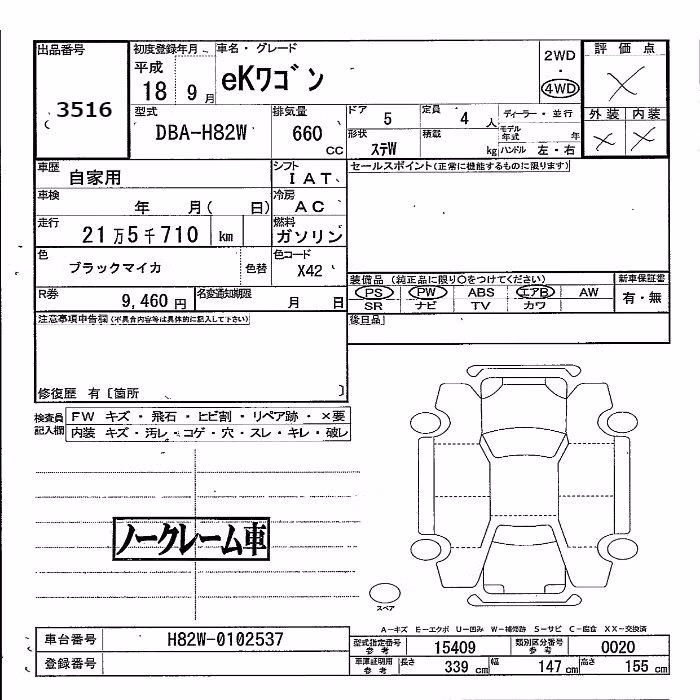 出品番号 初度登録年月 車名・グレード 2WD 評価点
3516 平成 18 9月 eKワゴン ・ 4WD ×
型式 排気量 ドア 5 定員 4 人 ディーラー・並行 外装 内装
DBA-H82W 660 cc 形状 ステW 積載 kg モデル年式 年 × ×
ハンドル 左・右
車歴 自家用 シフト IAT セールスポイント(正常に機能するものに限ります)
車検 年 月( 日) 冷房 AC
走行 21万5千710 km 燃料 ガソリン
色 ブラックマイカ 色替 色コード X42
装備品(純正品に限り○をつけてください) 新車保証書
R券 9,460円 名変通知期限 月 日 PS PW ABS エアB AW 有・無
SR ナビ TV カワ
注意事項申告欄(不具合内容等は具体的に記入して下さい) 後日品
修復歴 有〔箇所 〕
検査員記入欄 FW キズ・飛石・ヒビ割・リペア跡・×要
内装 キズ・汚レ・コゲ・穴・スレ・キレ・破レ
ノークレーム車
スペア
A-キズ E-エクボ U-凹み W-補修跡 S-サビ C-腐食 XX-交換済
車台番号 H82W-0102537 型式指定番号参考 15409 類別区分番号参考 0020
登録番号 車庫証明用参考 長さ 339cm 幅 147cm 高さ 155cm